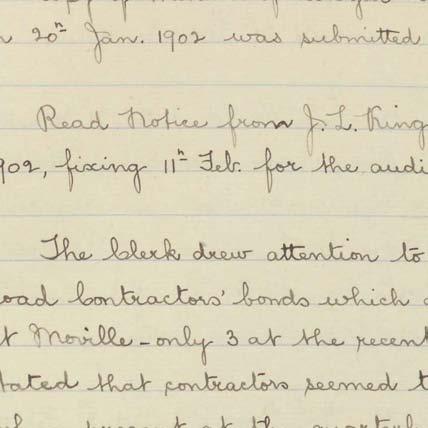 20ⁿ Jan. 1902 was submitted
Read Notice from J. L. King
902, fixing 11ⁿ Feb. for the audi
The Clerk drew attention to
oad Contractors' bonds which
t Moville - only 3 at the recent
tated that contractors seemed t